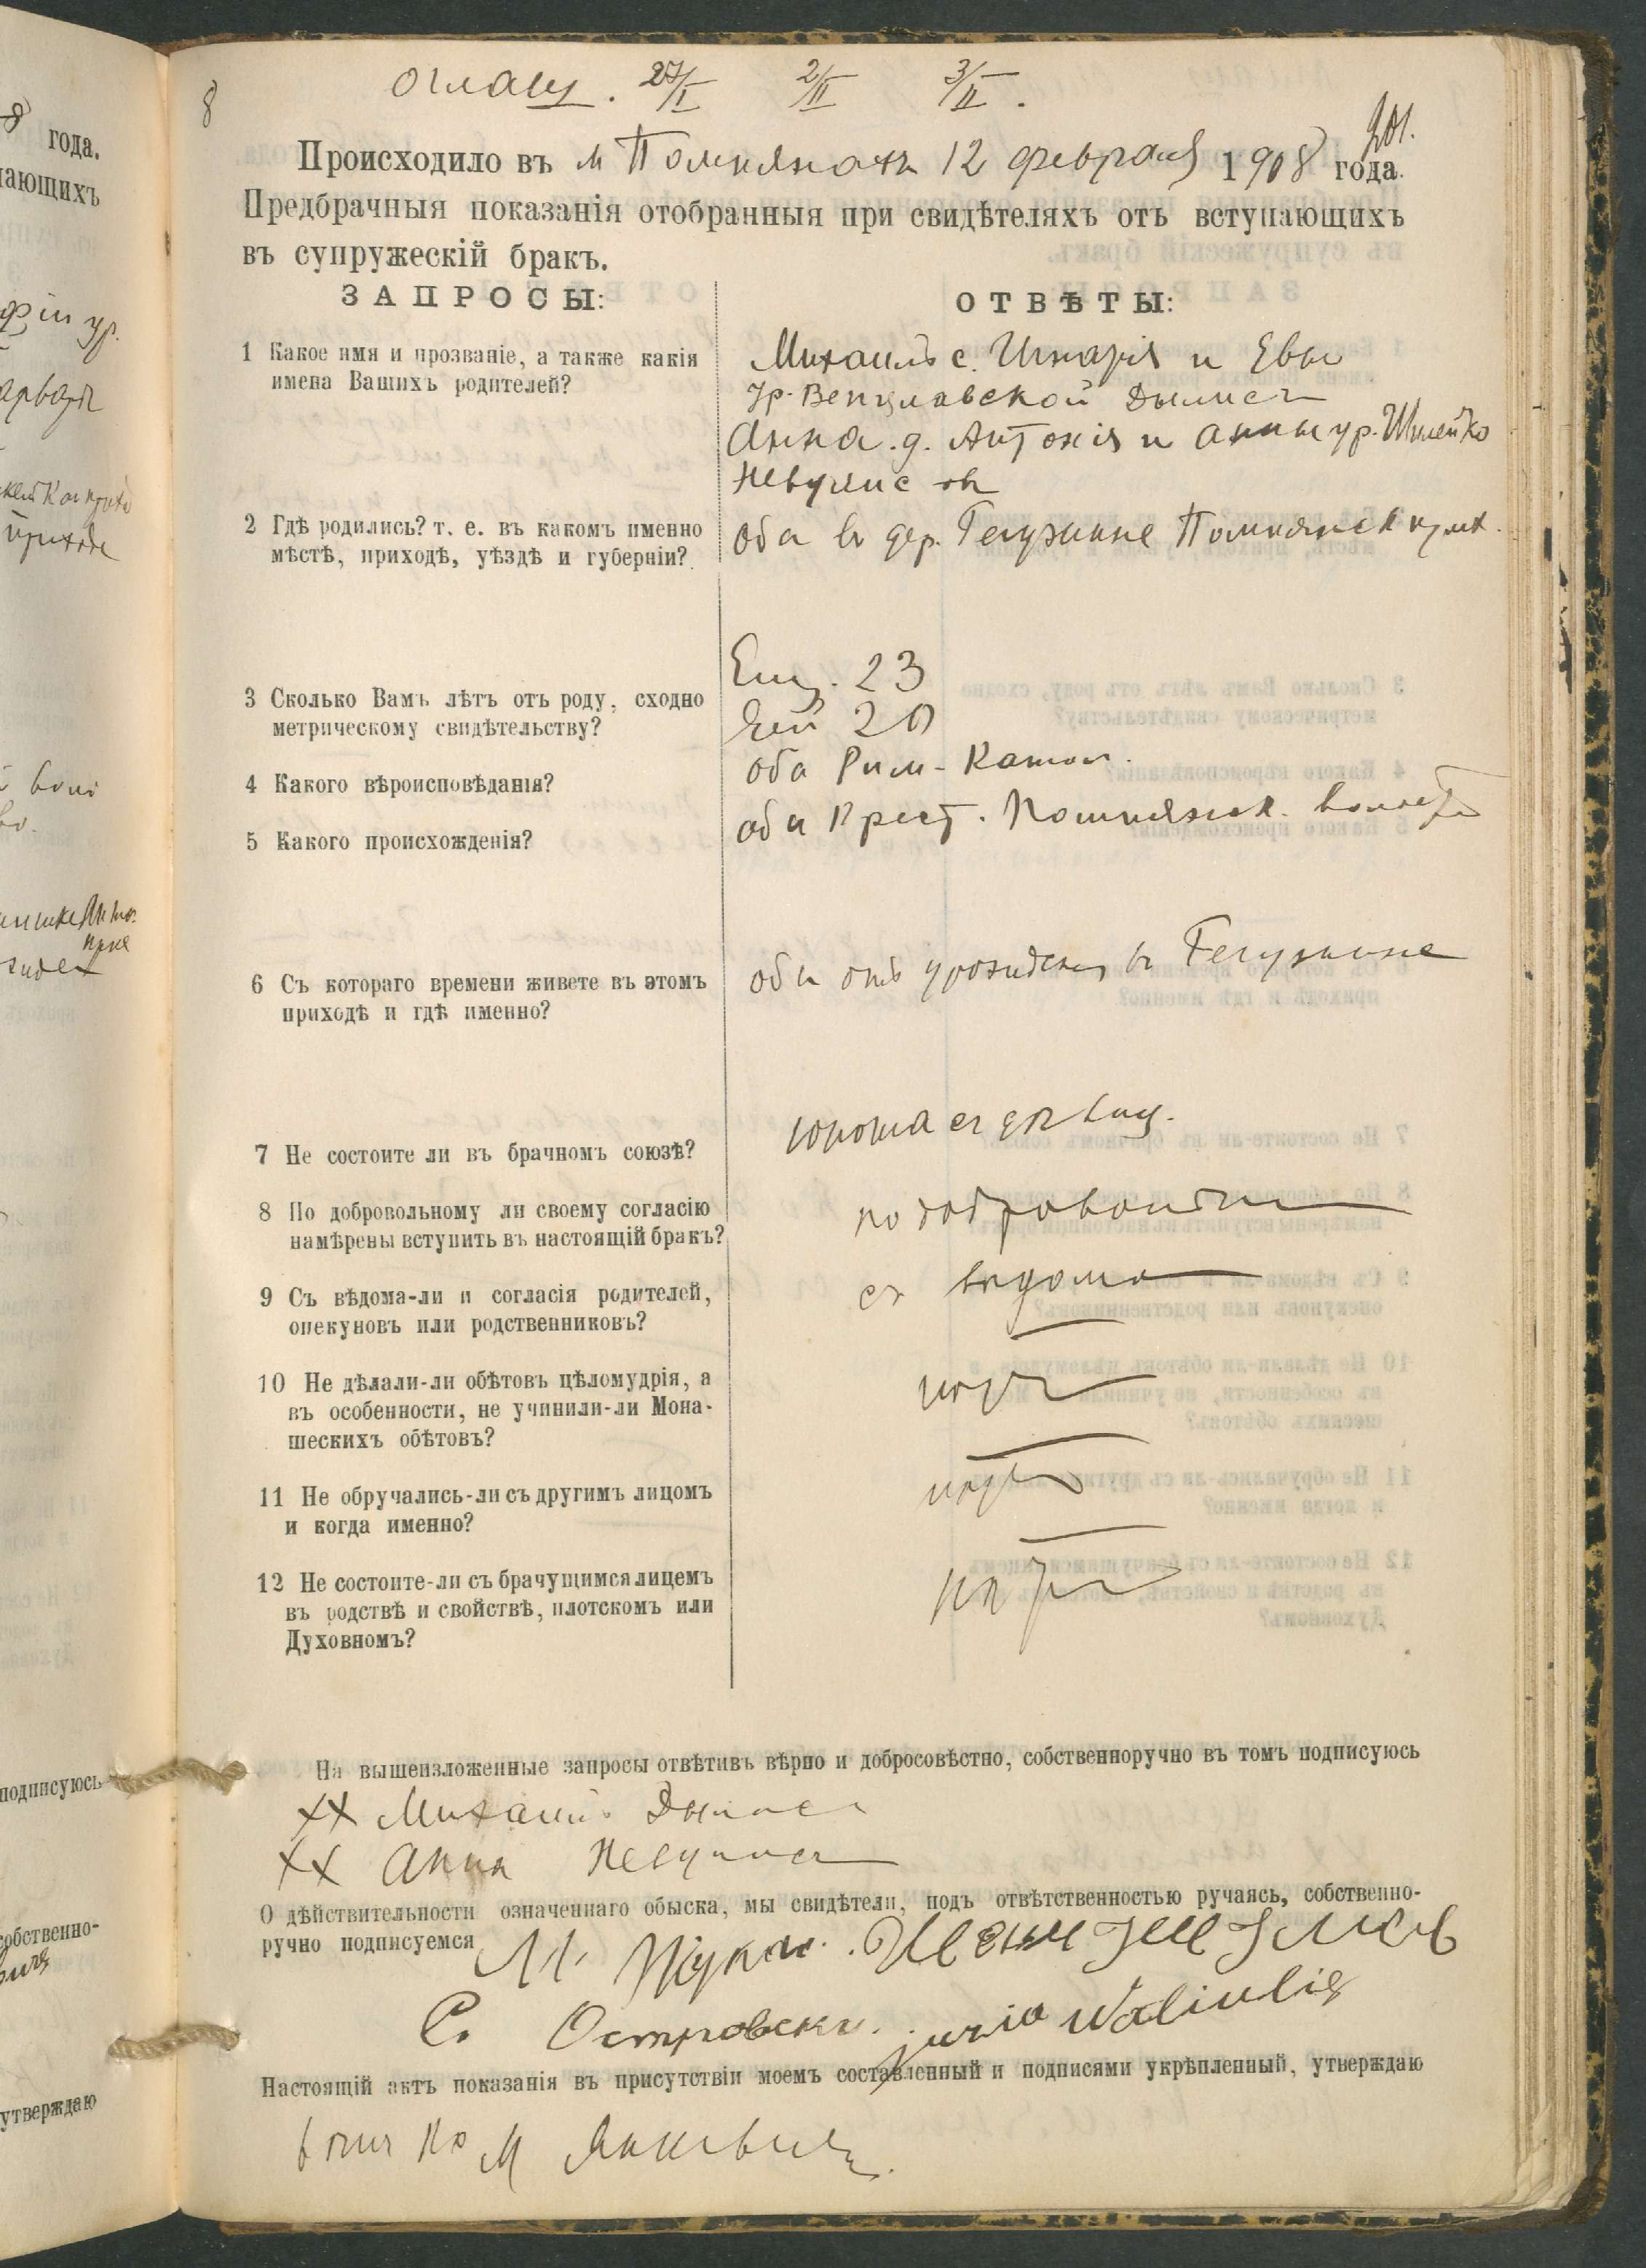 8
оглашу. 27/I 2/II 3/II.
Происходило въ м Помпянахъ 12 февраля 1908 года.
Предбрачныя показанія отобранныя при свидѣтеляхъ отъ вступающихъ
въ супружескій бракъ.
ЗАПРОСЫ:
ОТВѢТЫ:
1 Какое имя и прозваніе, а также какія
имена Вашихъ родителей?
Михаилъ с. Игнатія и Евы
ур. Венцлавской Дылисъ
Анна д. Антонія и Анны ур. Шлейко
Невулисъ
2 Гдѣ родились? т. е. въ какомъ именно
мѣстѣ, приходѣ, уѣздѣ и губерніи?
оба въ дер. Гегужине Помпянск прих.
3 Сколько Вамъ лѣтъ отъ роду, сходно
метрическому свидѣтельству?
Ему 23
Ей 20
4 Какого вѣроисповѣданія?
оба Рим-Катол.
5 Какого происхожденія?
оба Крест. Помпянск. волости
6 Съ котораго времени живете въ этомъ
приходѣ и гдѣ именно?
оба отъ рожденія въ Гегужине
7 Не состоите ли въ брачномъ союзѣ?
юноша съ дѣвиц.
8 По добровольному ли своему согласію
намѣрены вступить въ настоящій бракъ?
по добровольн
9 Съ вѣдома-ли и согласія родителей,
опекуновъ или родственниковъ?
съ вѣдома
10 Не дѣлали-ли обѣтовъ цѣломудрія, а
въ особенности, не учинили-ли Мона-
шескихъ обѣтовъ?
нѣтъ
11 Не обручались-ли съ другимъ лицомъ
и когда именно?
нѣтъ
12 Не состоите-ли съ брачущимся лицемъ
въ родствѣ и свойствѣ, плотскомъ или
Духовномъ?
нѣтъ
На вышеизложенные запросы отвѣтивъ вѣрно и добросовѣстно, собственноручно въ томъ подписуюсь
ХХ Михаилъ Дылисъ
ХХ Анна Невулисъ
О дѣйствительности означеннаго обыска, мы свидѣтели, подъ отвѣтственностью ручаясь, собственно-
ручно подписуемся
С. Островски.
Настоящій актъ показанія въ присутствіи моемъ составленный и подписями укрѣпленный, утверждаю
М Янкевичъ.